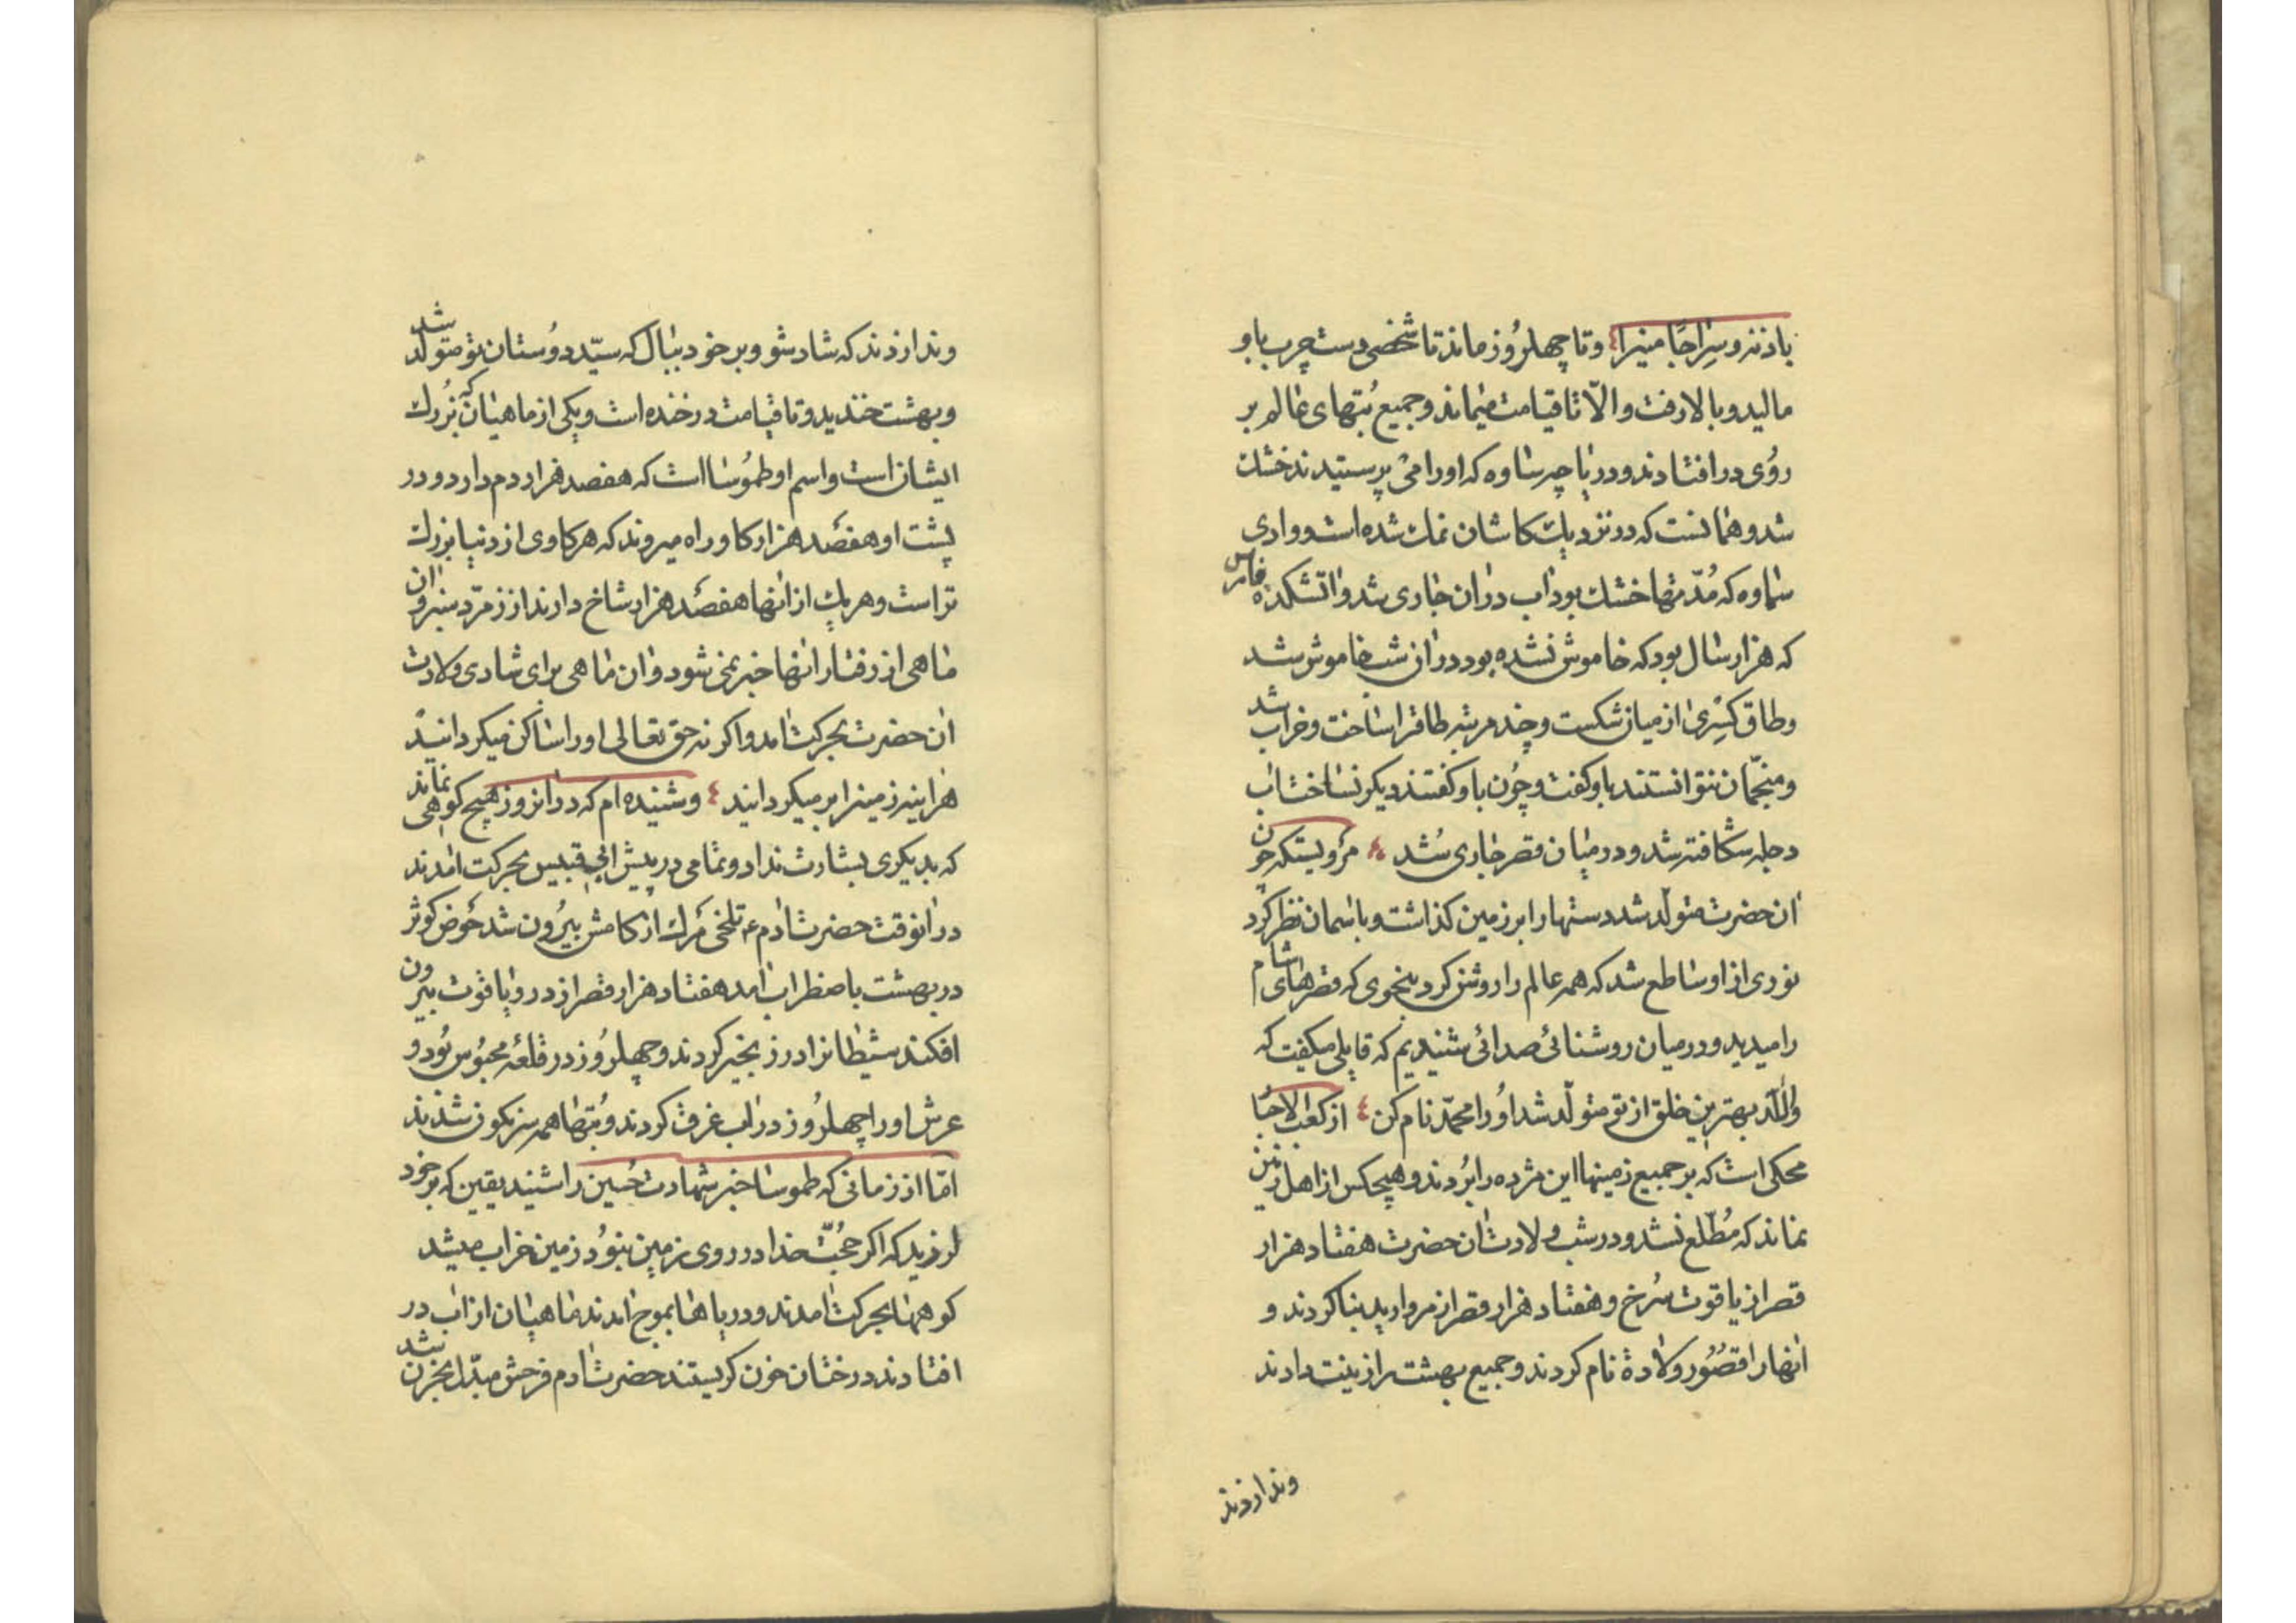 باذنه وسراجًا منیرا وتا چهل روز ماند تا شخصی دست چرب باو
مالید و بالا رفت والّا تا قیامت میماند وجمیع بُتهای عالم بر
رُوی در افتادند و دریاچه ساوه که اورا می پرستیدند خشک
شد وهمانست که در نزدیک کاشان نمک شده است ووادی
سماوه که مُدّتها خشک بود اب دران جاری شد واتشکده فارس
که هزار سال بود که خاموش نشده بود دران شب خاموش شد
وطاق کسری از میان شکست وچند مرتبه طاقرا ساخت وخراب شد
ومنجّمان نتوانستند باو کفت وچُون باو کفتند دیکر نساخت اب
دجله شکافته شد و درمیان قصر جاری شد مرویستکه چون
ان حضرت متولّد شد دستهارا بر زمین کذاشت وباسمان نظر کرد
نوری از او ساطع شد که همه عالم را روشن کرد بنحوی که قصرهای شام
را میدید و درمیان روشنائی صدائی شنیدیم که قایلی میکفت که
واللّه بهترین خلق از تو متولّد شد اورا محمّد نام کن از کعب الاحبا
محکی است که بر جمیع زمینها این مژده را بُردند وهیچکس از اهل زمین
نماند که مُطّلع نشد و در شب ولادت ان حضرت هفتاد هزار
قصر از یاقوت سُرخ وهفتاد هزار قصر از مروارید بنا کردند و
انهارا قصُور ولادة نام کردند وجمیع بهشت را زینت دادند
وندا زدند
وندا زدند که شاد شو وبر خود ببال که سیّد دوُستان تو متولّد شد
وبهشت خندید وتا قیامت در خنده است ویکی از ماهیان که بُزرك
ایشان است واسم او طموُسا است که هفصد هزار دم دارد و در
پشت او هفصد هزار کاو راه میروند که هر کاوی از دنیا بزرك
تر است وهر یك از انها هفصد هزار شاخ دارند از زمرّد سبز وان
ماهی از رفتار انها خبر نمی شود وان ماهی برای شادی ولادت
ان حضرت بحرکت امد واکر نه حق تعالی اورا ساکن میکردانید
هراینه زمینرا بر میکردانید وشنیده ام که در انروز هیچ کوهی نماند
که بدیکری بشارت نداد وتمامی در پیش ابی قبیس بحرکت امدند
در انوقت حضرت ادم ع تلخی مَرك از کامش بیُرون شد حَوض کوثر
در بهشت باضطراب امد هفتاد هزار قصر از در ویاقوت بیرون
افکند شیطانرا در زنجیر کردند وچهل روُز در قلعه محبُوس بُود و
عرش اورا چهل روُز در اب غرق کردند وبُتها همه سرنکون شدند
امّا از زمانی که طموسا خبر شهادت حُسین را شنید یقین که بر خود
لرزید که اکر حجُّت خدا در روی زمین نبوُد زمین خراب میشد
کوهها بحرکت امدند و دریاها بموج امدند ماهیان از اب در
افتادند درختان خون کریستند حضرت ادم فرحش مبدّل بحزن شد